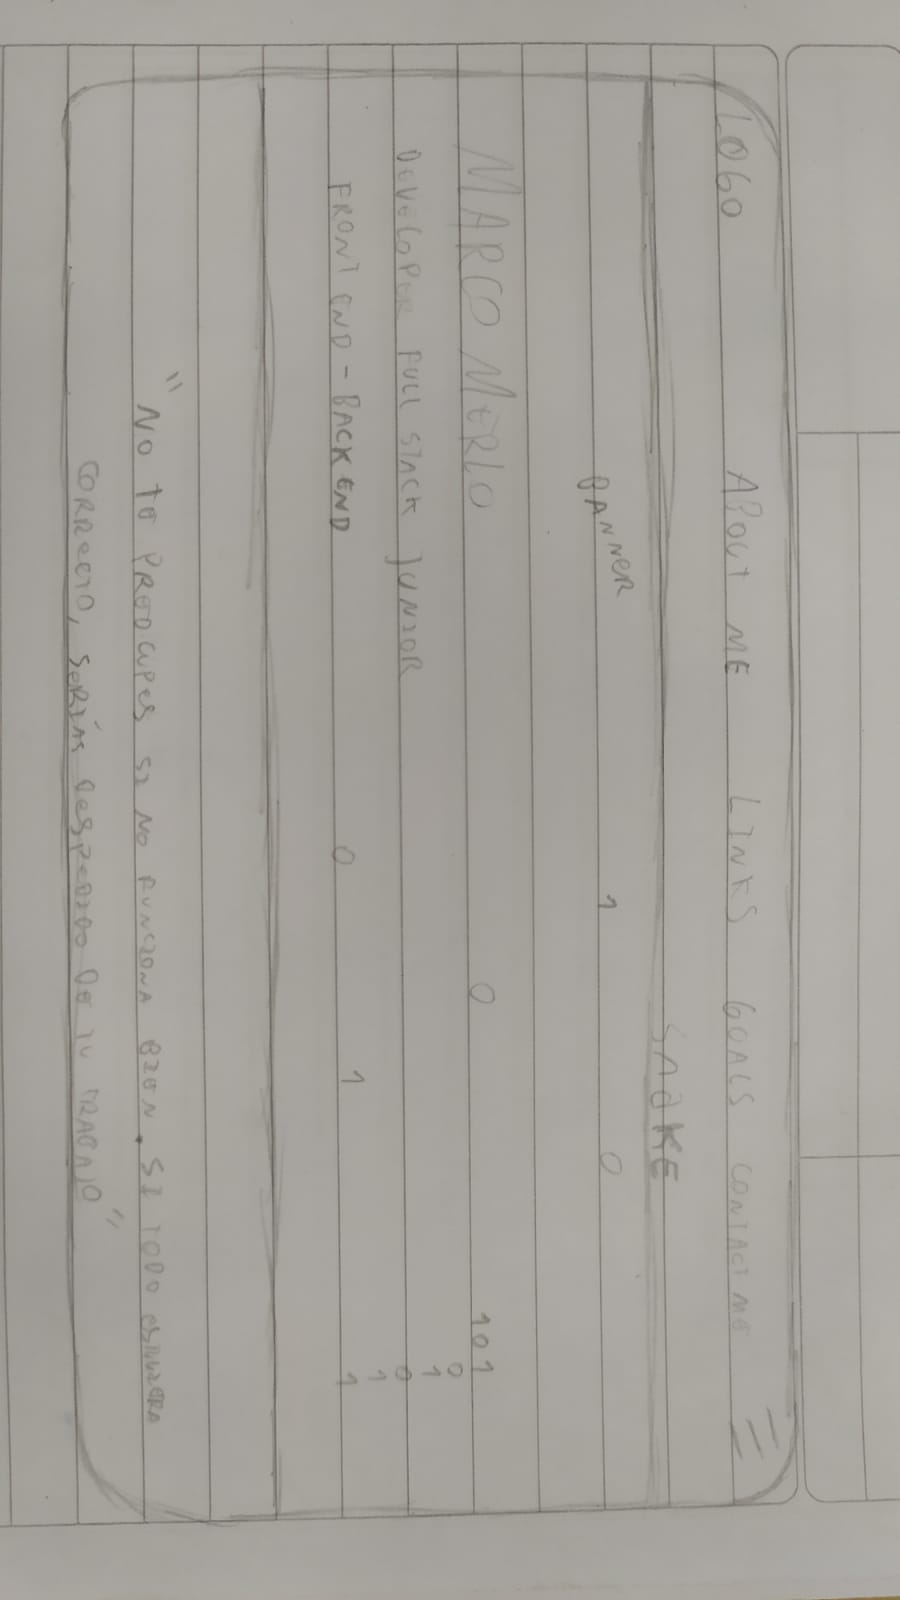 LOGO ABOUT ME LINKS GOALS CONTACT ME
SNAKE
BANNER 1 0
MARCO MERLO 0 101
0
1
DEVELOPER FULL STACK JUNIOR 0
1
FRONT END - BACK END 0 1 1
"NO TE PREOCUPES SI NO FUNCIONA BIEN. SI TODO ESTUVIERA
CORRECTO, SERÍAS DESPEDIDO DE TU TRABAJO"